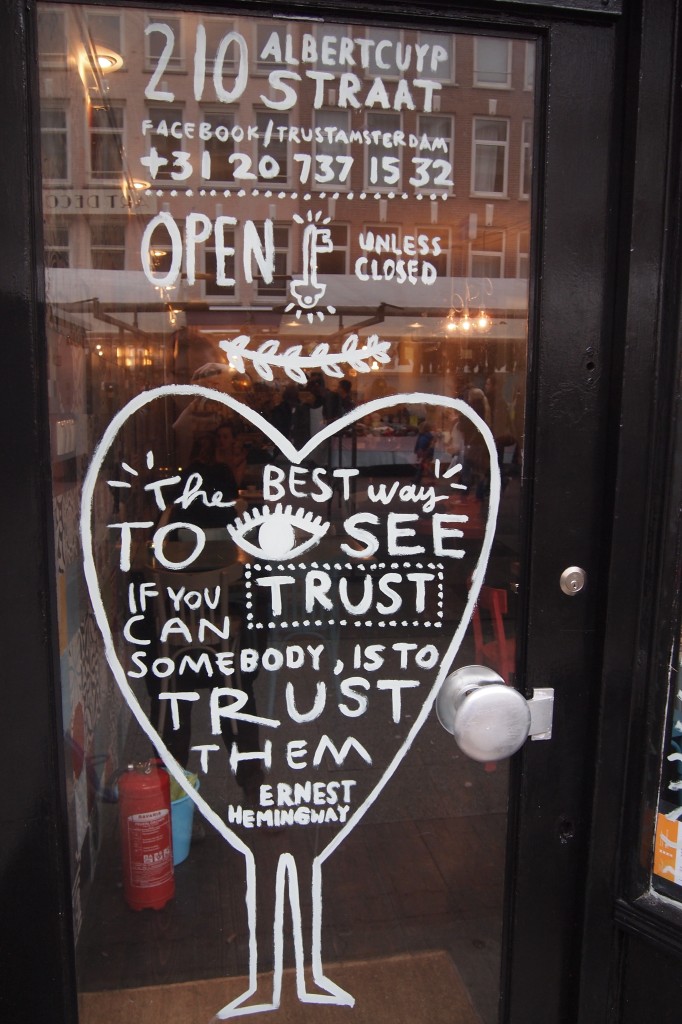 210 ALBERTCUYP
STRAAT
FACEBOOK/TRUSTAMSTERDAM
+31 20 737 15 32
OPEN UNLESS
CLOSED
The BEST way
TO SEE
IF YOU TRUST
CAN
SOMEBODY, IS TO
TRUST
THEM
ERNEST
HEMINGWAY